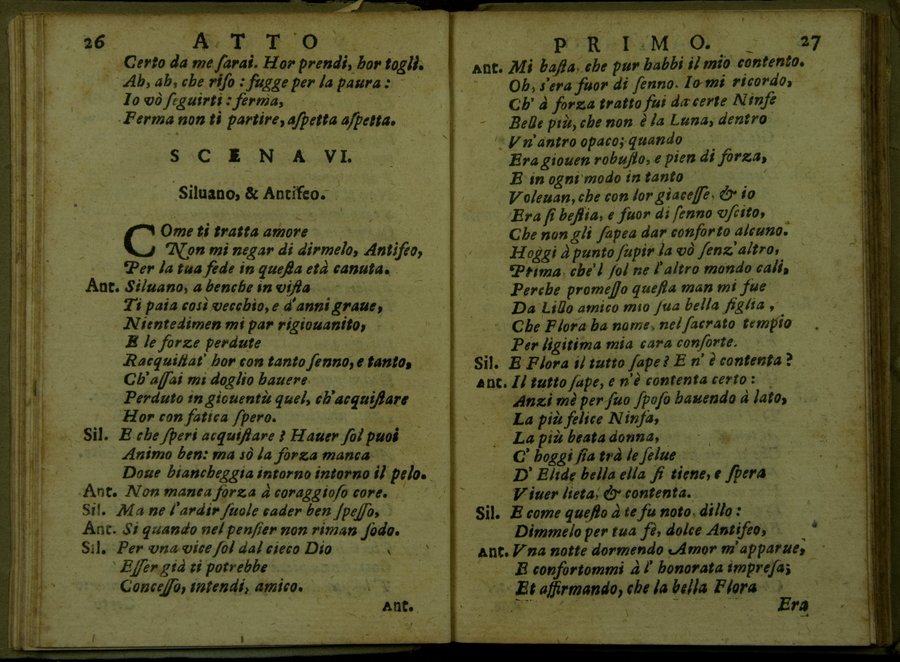 26 ATTO
Certo da me ſarai. Hor prendi, hor togli.
Ah, ah, che riſo : fugge per la paura :
Io vò ſeguirti : ferma,
Ferma non ti partire, aſpetta aſpetta.
SCENA VI.
Siluano, & Antifeo.
COme ti tratta amore
Non mi negar di dirmelo, Antifeo,
Per la tua fede in queſta età canuta.
Ant. Siluano, a benche in viſta
Ti paia così vecchio, e d'anni graue,
Nientedimen mi par rigiouanito,
E le forze perdute
Racquiſtat' hor con tanto ſenno, e tanto,
Ch'aſſai mi doglio hauere
Perduto in giouentù quel, ch'acquiſtare
Hor con fatica ſpero.
Sil. E che ſperi acquiſtare ? Hauer ſol puoi
Animo ben: ma sò la forza manca
Doue biancheggia intorno intorno il pelo.
Ant. Non manca forza à coraggioſo core.
Sil. Ma ne l'ardir ſuole cader ben ſpeſſo,
Ant. Si quando nel penſier non riman ſodo.
Sil. Per vna vice ſol dal cieco Dio
Eſſer già ti potrebbe
Conceſſo, intendi, amico.
Ant.
PRIMO. 27
Ant. Mi baſta, che pur habbi il mio contento.
Oh, s'era fuor di ſenno. Io mi ricordo,
Ch' à forza tratto fui da certe Ninfe
Belle più, che non è la Luna, dentro
Vn'antro opaco; quando
Era giouen robuſto, e pien di forza,
E in ogni modo in tanto
Voleuan, che con lor giaceſſe, & io
Era ſi beſtia, e fuor di ſenno vſcito,
Che non gli ſapea dar conforto alcuno.
Hoggi à punto ſupir la vò ſenz'altro,
Prima, che'l ſol ne l'altro mondo cali,
Perche promeſſo queſta man mi fue
Da Lillo amico mio ſua bella figlia,
Che Flora ha nome, nel ſacrato tempio
Per ligitima mia cara conſorte.
Sil. E Flora il tutto ſape? E n' è contenta?
Ant. Il tutto ſape, e n'è contenta certo :
Anzi mè per ſuo ſpoſo hauendo à lato,
La più felice Ninfa,
La più beata donna,
C' hoggi ſia trà le ſelue
D' Elide bella ella ſi tiene, e ſpera
Viuer lieta, & contenta.
Sil. E come queſto à te fu noto, dillo :
Dimmelo per tua fè, dolce Antifeo,
Ant. Vna notte dormendo Amor m'apparue,
E confortommi à l' honorata impreſa;
Et affirmando, che la bella Flora
Era